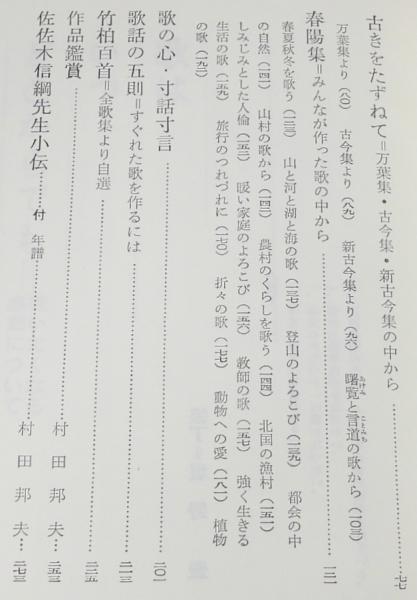 古きをたずねて＝万葉集・古今集・新古今集の中から……七七
万葉集より（八〇）　古今集より（八九）　新古今集より（九六）　曙覧と言道の歌から（一〇三）
春陽集＝みんなが作った歌の中から……一二一
春夏秋冬を歌う（一二三）　山と河と湖と海の歌（一三七）　登山のよろこび（一三九）　都会の中
の自然（一四一）　山村の歌から（一四二）　農村のくらしを歌う（一四四）　北国の漁村（一五一）
しみじみとした人倫（一五三）　暖い家庭のよろこび（一五六）　教師の歌（一五七）　強く生きる
生活の歌（一五九）　旅行のつれづれに（一七〇）　折々の歌（一七七）　動物への愛（一八一）　植物
の歌（一九二）
歌の心・寸話寸言……二〇一
歌話の五則＝すぐれた歌を作るには……二一三
竹柏百首＝全歌集より自選……二二五
作品鑑賞……村田邦夫…二五三
佐佐木信綱先生小伝……付　年譜……村田邦夫…二七三